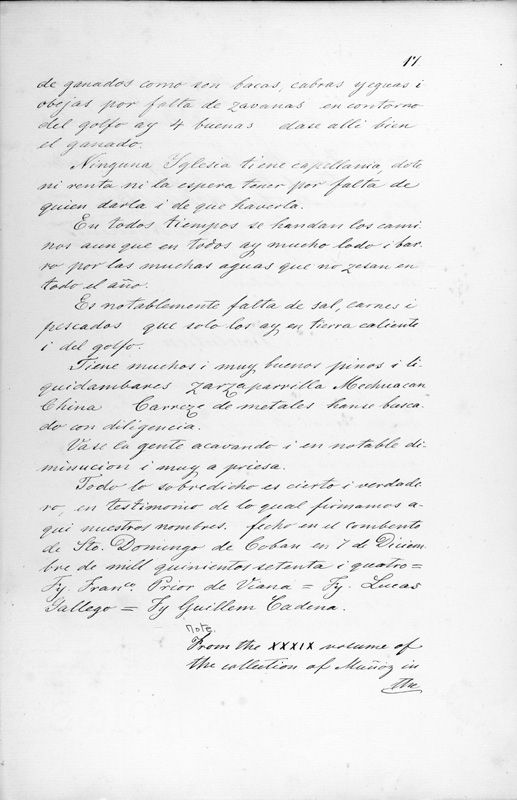 17
de ganados como son bacas, cabras yeguas i
obejas por falta de zavanas en contorno
del golfo ay 4 buenas dase alli bien
el ganado.
Ninguna Iglesia tiene capellania, dote
ni renta ni la espera tener por falta de
quien darla i de que haverla.
En todos tiempos se handan los cami-
nos aunque en todos ay mucho lodo i bar-
ro por las muchas aguas que no zesan en
todo el año.
Es notablemente falta de sal, carnes i
pescados que solo los ay en tierra caliente
i del golfo.
Tiene muchos i muy buenos pinos i li-
quidambares zarzaparrilla Mechuacan
China Carreze de metales hanse busca-
do con diligencia.
Vase la gente acavando i en notable di-
minucion i muy a priesa.
Todo lo sobredicho es cierto i verdade-
ro, en testimonio de lo qual firmamos a-
qui nuestros nombres. fecho en el combento
de Sto. Domingo de Coban en 7 de Diciem-
bre de mill quinientos setenta i quatro =
Fy. Franco. Prior de Viana = Fy. Lucas
Gallego = Fy Guillem Cadena.
Note.
From the XXXIX volume of
the collection of Muñoz in
the